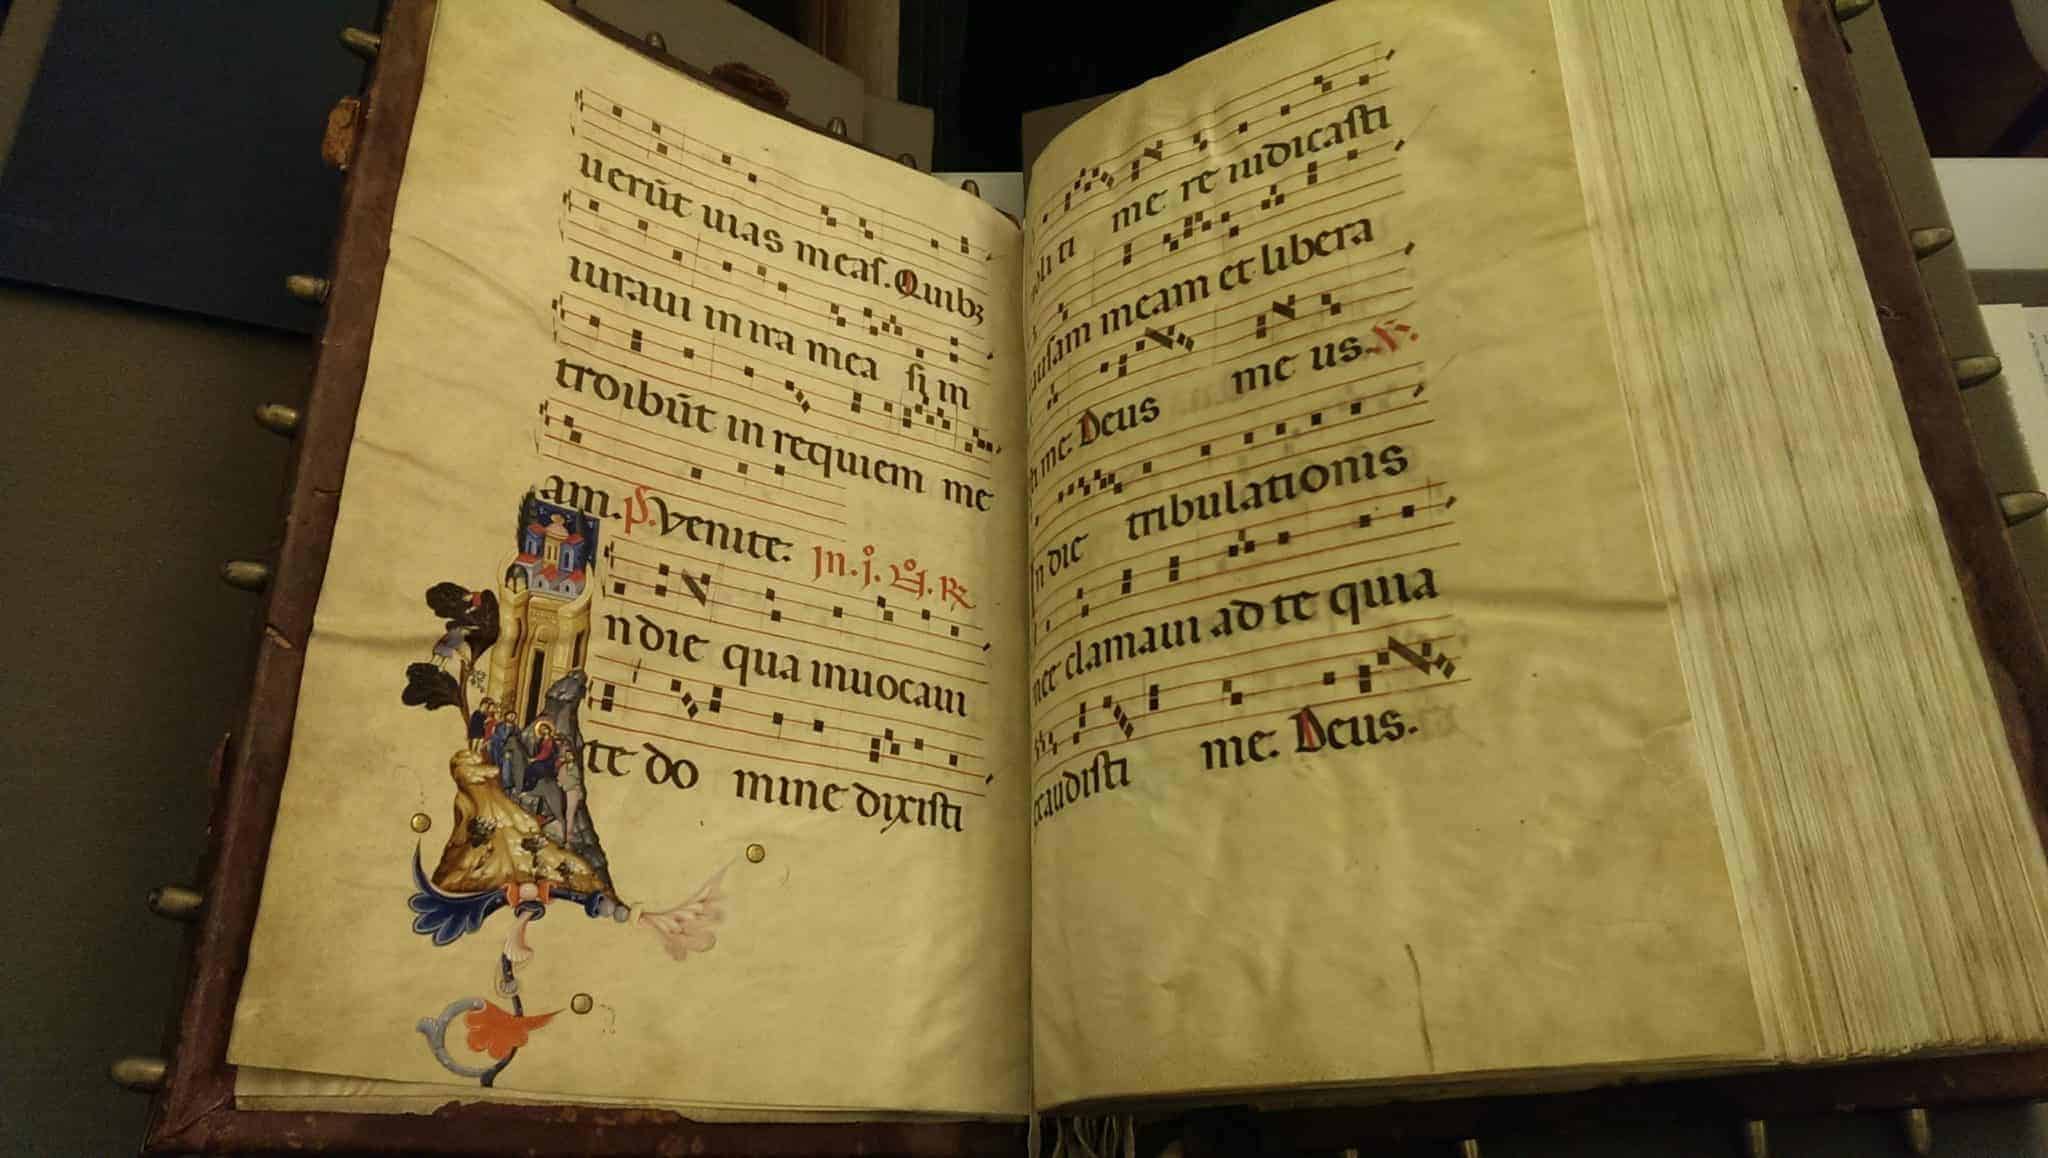 uerūt uias meas. Quibꝫ
iuraui in ira mea si in
troibūt in requiem me
am. ps. Venite. In. j. R
n die qua inuocaui
te do mine dixisti
me re iudicasti
meam et libera
me. Deus me us. V.
n die tribulationis
clamaui ad te quia
exaudisti me. Deus.